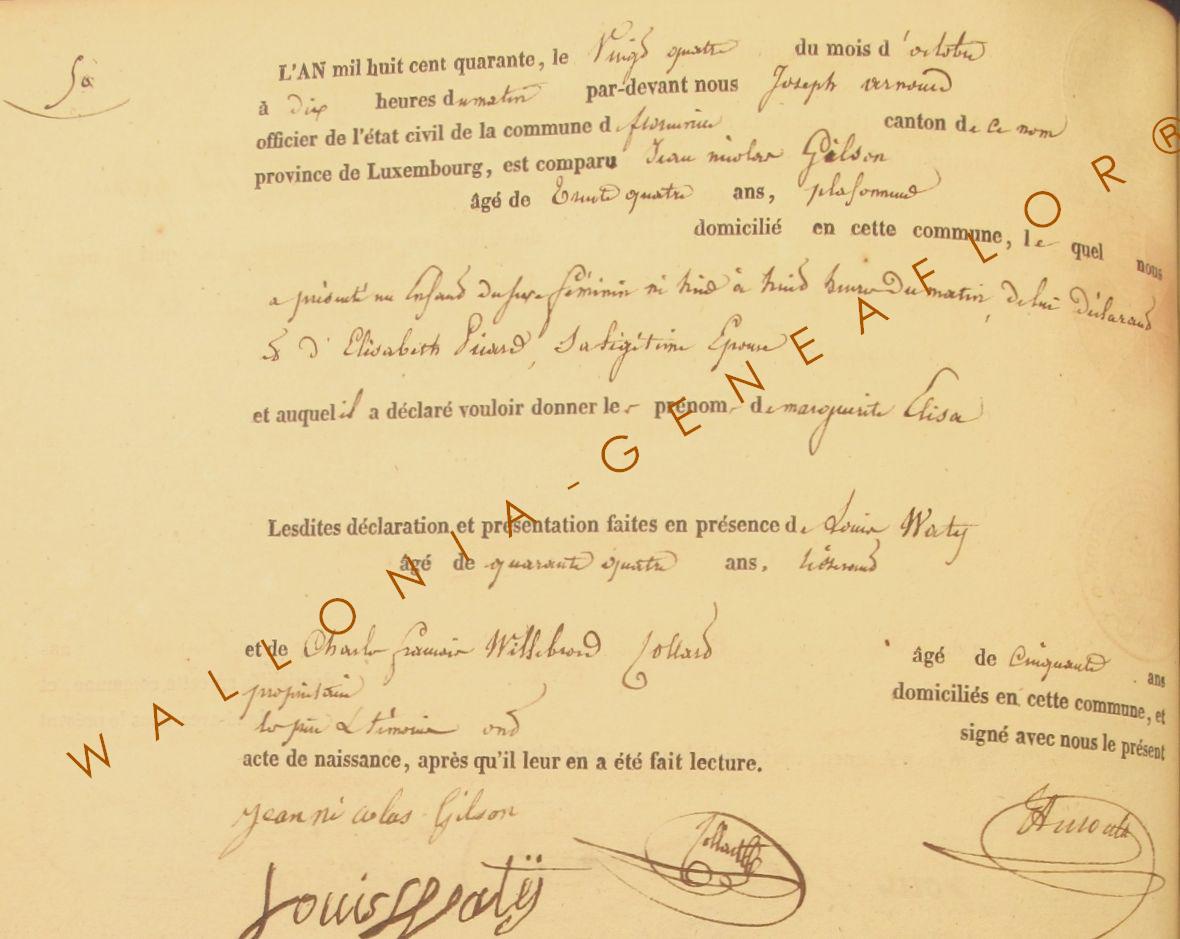 50
L'AN mil huit cent quarante, le Vingt quatre du mois d'octobre
à dix heures du matin par-devant nous Joseph arnould
officier de l'état civil de la commune de florenville canton de ce nom
province de Luxembourg, est comparu Jean nicolas Gilson
âgé de trente quatre ans, plafonneur
domicilié en cette commune, lequel nous
a présenté un Enfant du sexe féminin né hier à huit heures du matin, de lui déclarant
et d'Elisabeth Pierard, sa légitime Epouse
et auquel il a déclaré vouloir donner le prénom de marguerite Elisa
Lesdites déclaration et présentation faites en présence de Louis Waty
âgé de quarante quatre ans, tisserand
et de Charles francois Willebrord Collard
âgé de Cinquante ans
propriétaire
domiciliés en cette commune, et
les père & témoins ont
signé avec nous le présent
acte de naissance, après qu'il leur en a été fait lecture.
jean nicolas Gilson
Collard
Arnould
Louis Watÿ
WALLONIA-GENEAFLOR®